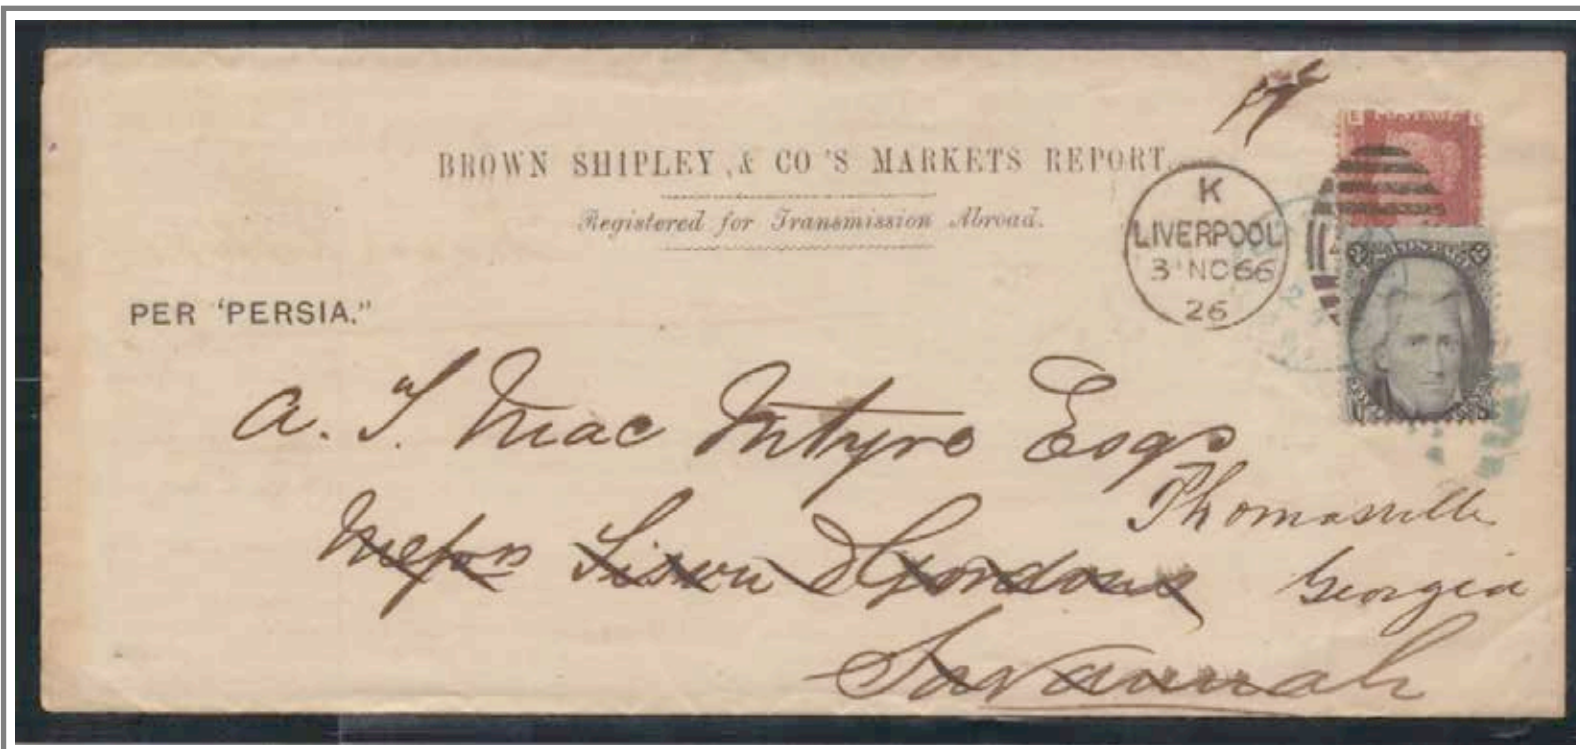 BROWN SHIPLEY, & CO'S MARKETS REPORT.
Registered for Transmission Abroad.
K
LIVERPOOL
3 NO 66
26
PER 'PERSIA."
A. T. Mac Intyre Esqr
Thomasville
Messrs Tison & Gordons
Georgia
Savannah